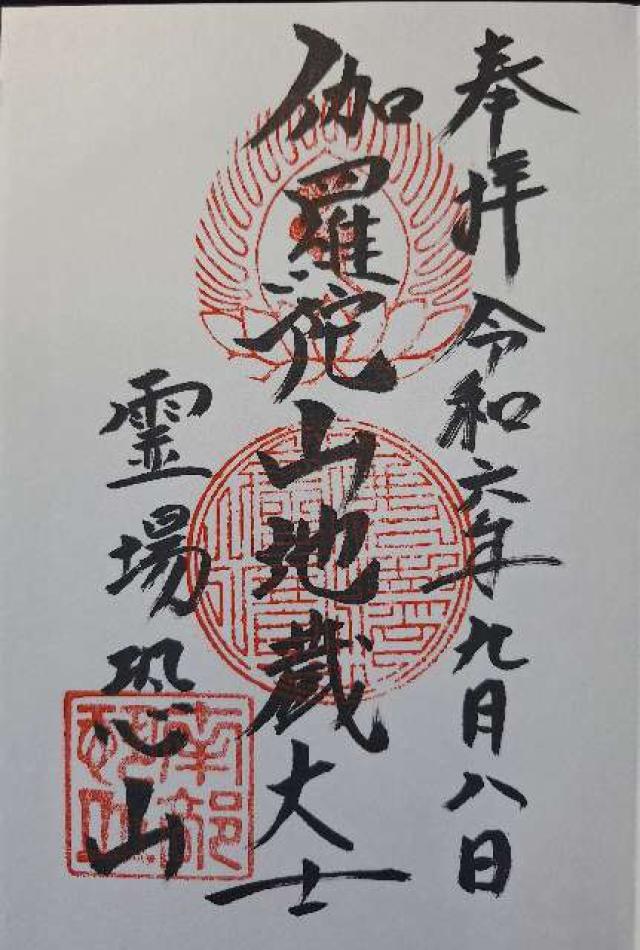 奉拝 令和六年九月八日
伽羅陀山地蔵大士
霊場恐山
南部
恐山